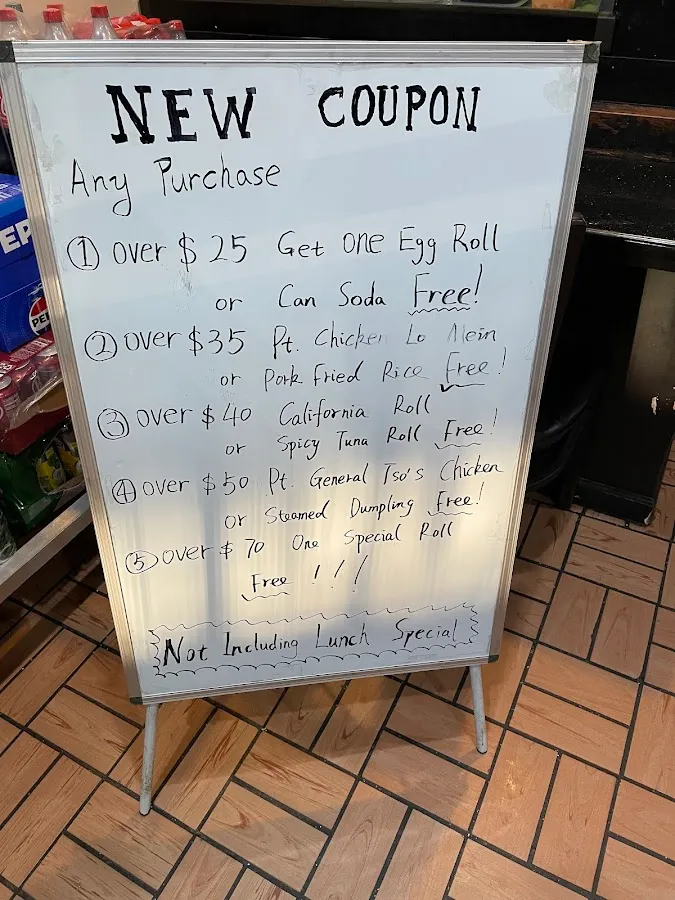 NEW COUPON
Any Purchase
① over $25 Get one Egg Roll
or Can Soda Free!
② over $35 Pt. Chicken Lo Mein
or Pork Fried Rice Free!
③ over $40 California Roll
or Spicy Tuna Roll Free!
④ over $50 Pt. General Tso's Chicken
or Steamed Dumpling Free!
⑤ over $70 One Special Roll
Free!!!
Not Including Lunch Special
EP
PE